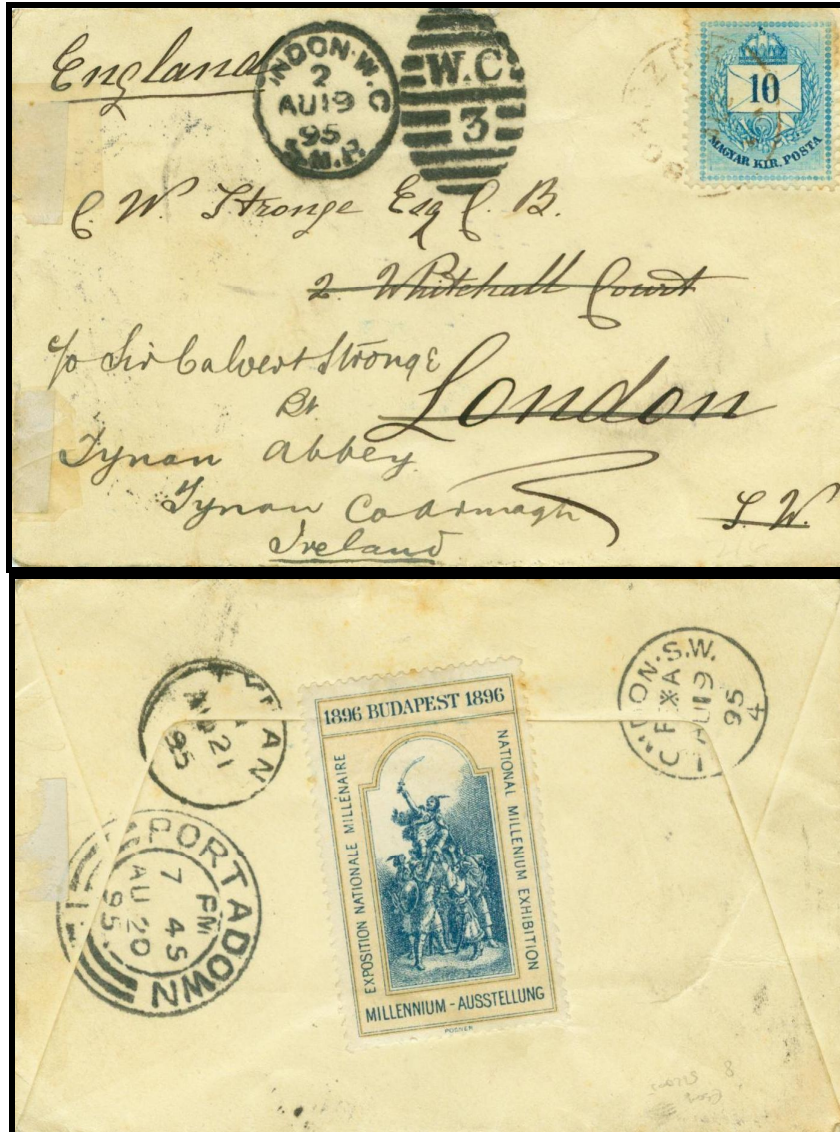 England
LONDON·W.C
2
AU 19
95
S.M.P.
W.C
3
10
MAGYAR KIR. POSTA
C. W. Stronge Esq C. B.
2. Whitehall Court
c/o Sir Calvert Stronge
Bt
London
Tynan Abbey
Tynan Co Armagh
Ireland
S.W.
TYNAN
AU 21
95
LONDON·S.W.
AU 19
95
4
PORTADOWN
7 45 PM
AU 20
95
1896 BUDAPEST 1896
EXPOSITION NATIONALE MILLÉNAIRE
NATIONAL MILLENIUM EXHIBITION
MILLENNIUM-AUSSTELLUNG
POSNER